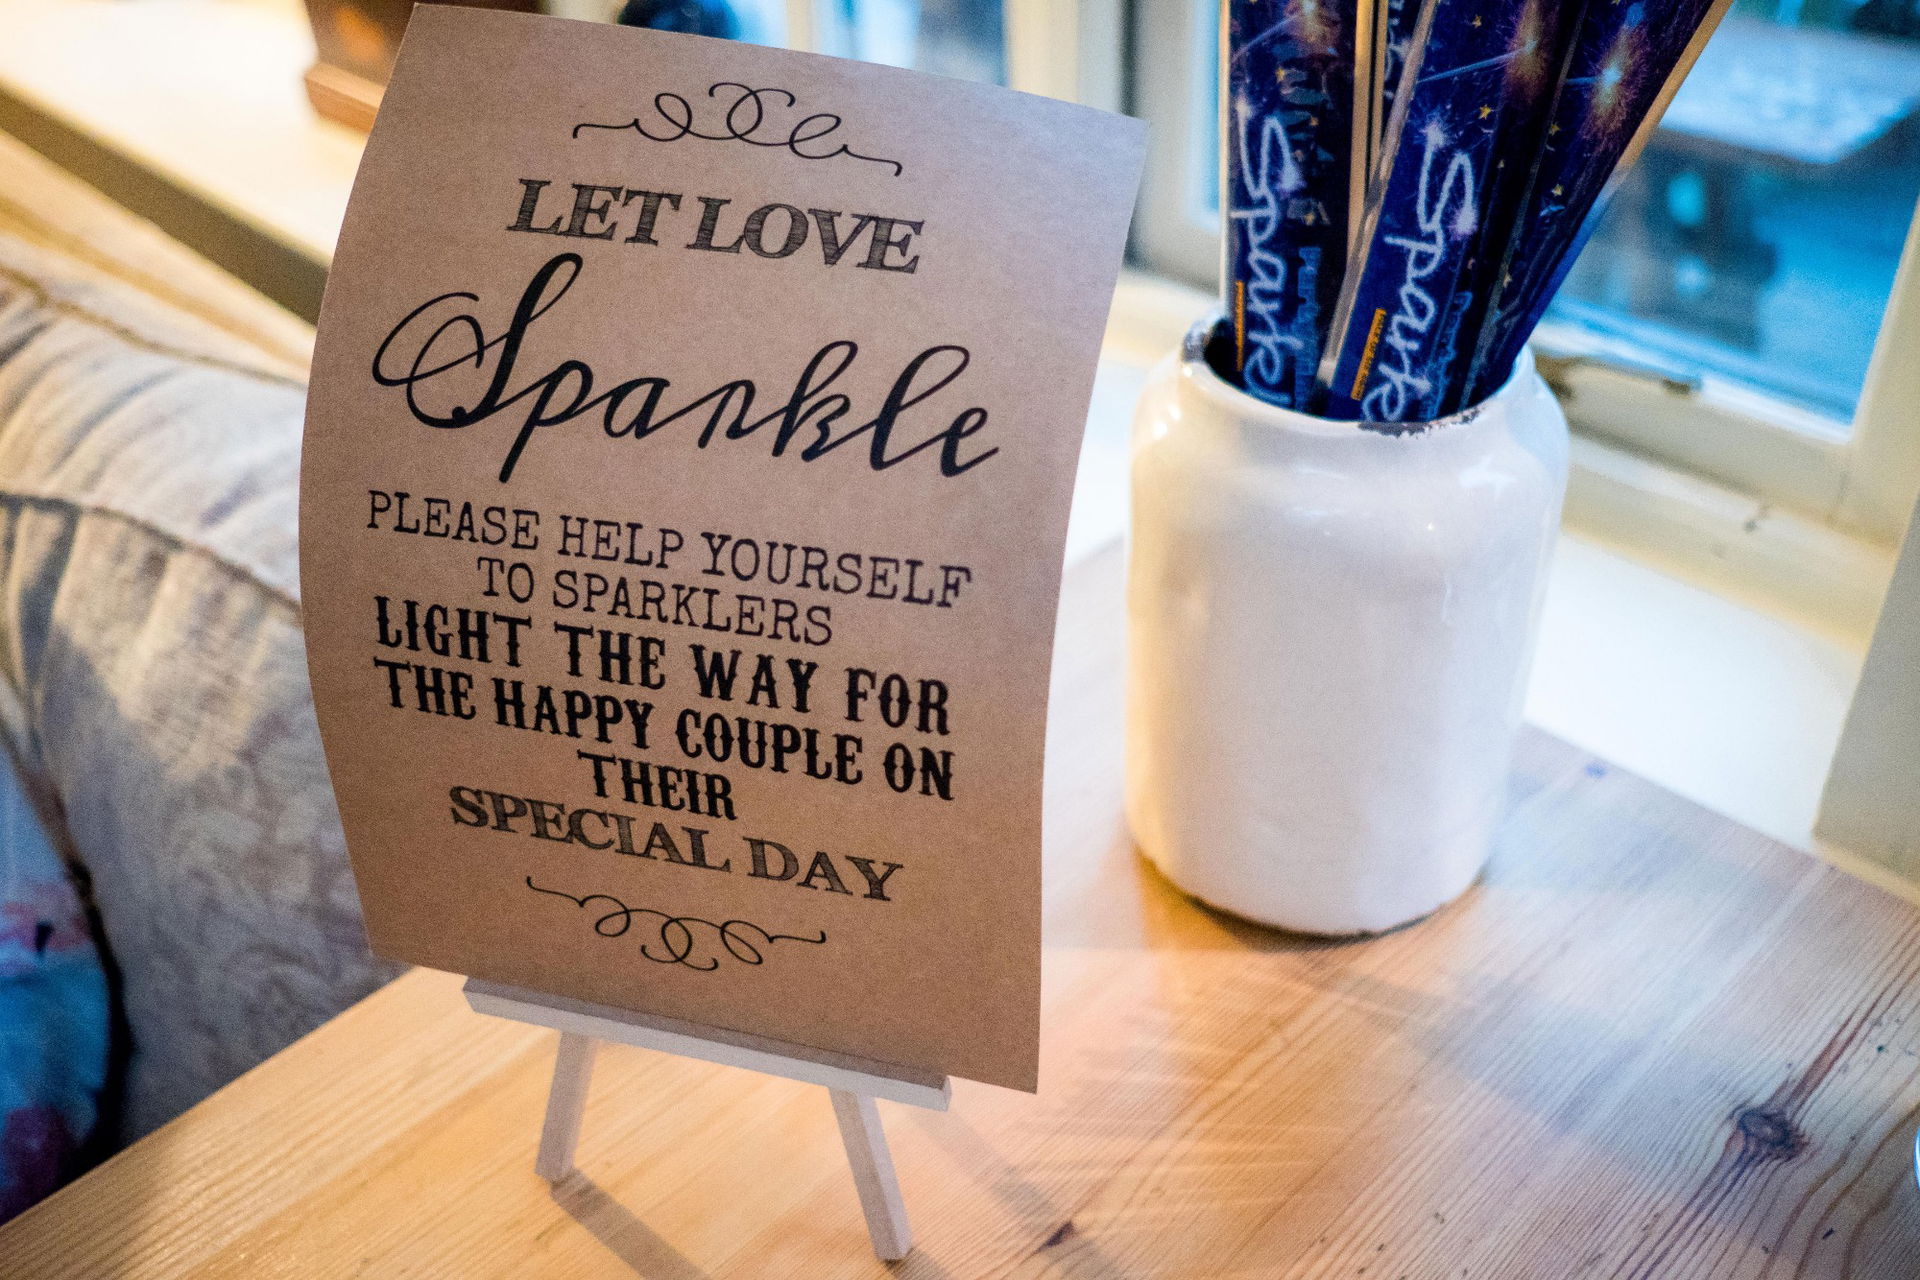 LET LOVE
Sparkle
PLEASE HELP YOURSELF
TO SPARKLERS
LIGHT THE WAY FOR
THE HAPPY COUPLE ON
THEIR
SPECIAL DAY
Spark
Spark